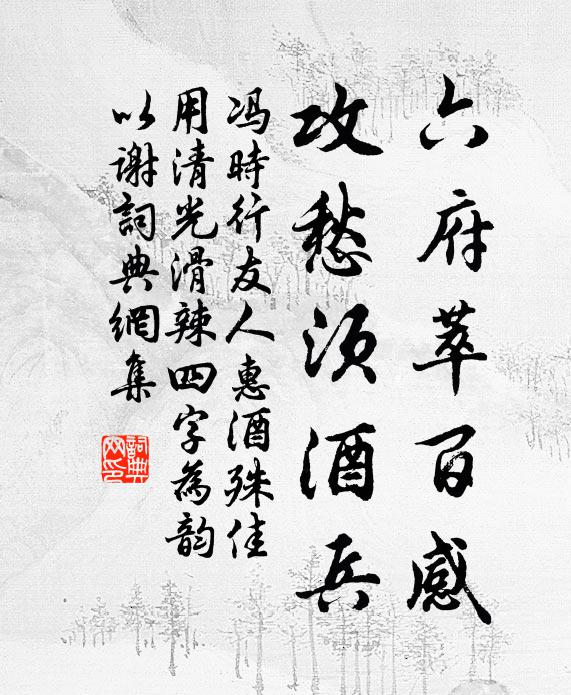 六府萃百感
攻愁须酒兵
冯時行友人惠酒殊佳
用清光滑辣四字為韵
以谢詞典網集
詞典网印